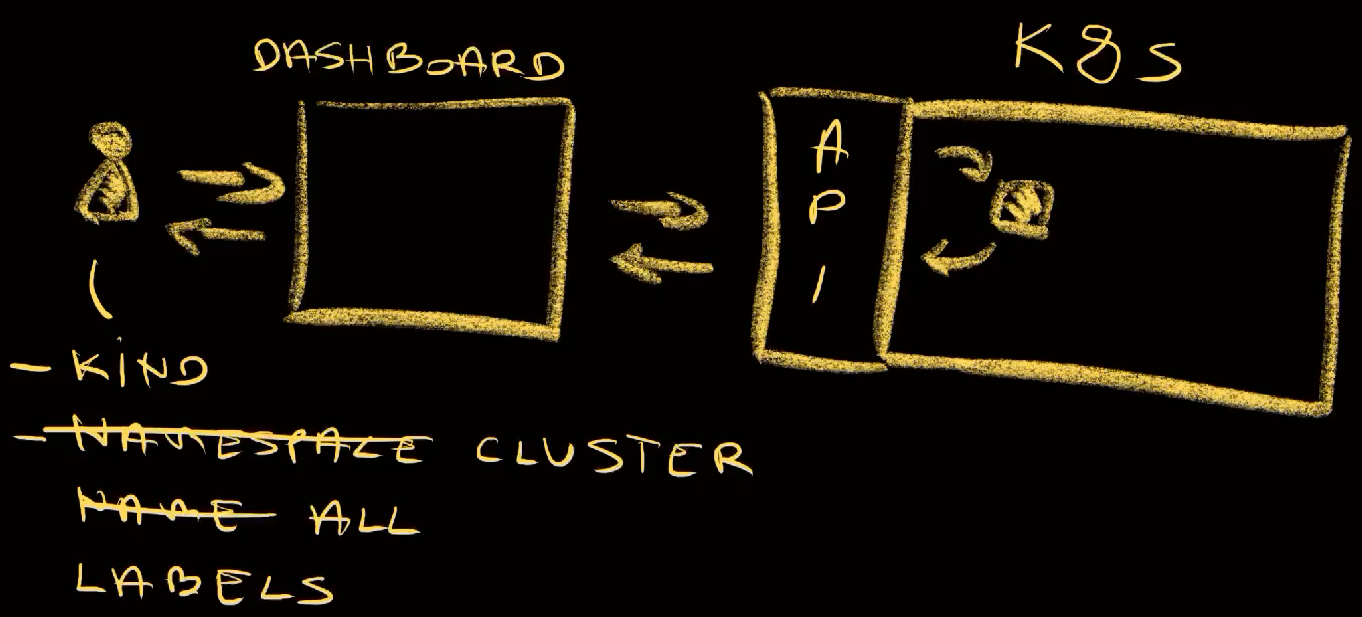 DASHBOARD
K8S
API
- KIND
- NAMESPACE CLUSTER
NAME ALL
LABELS